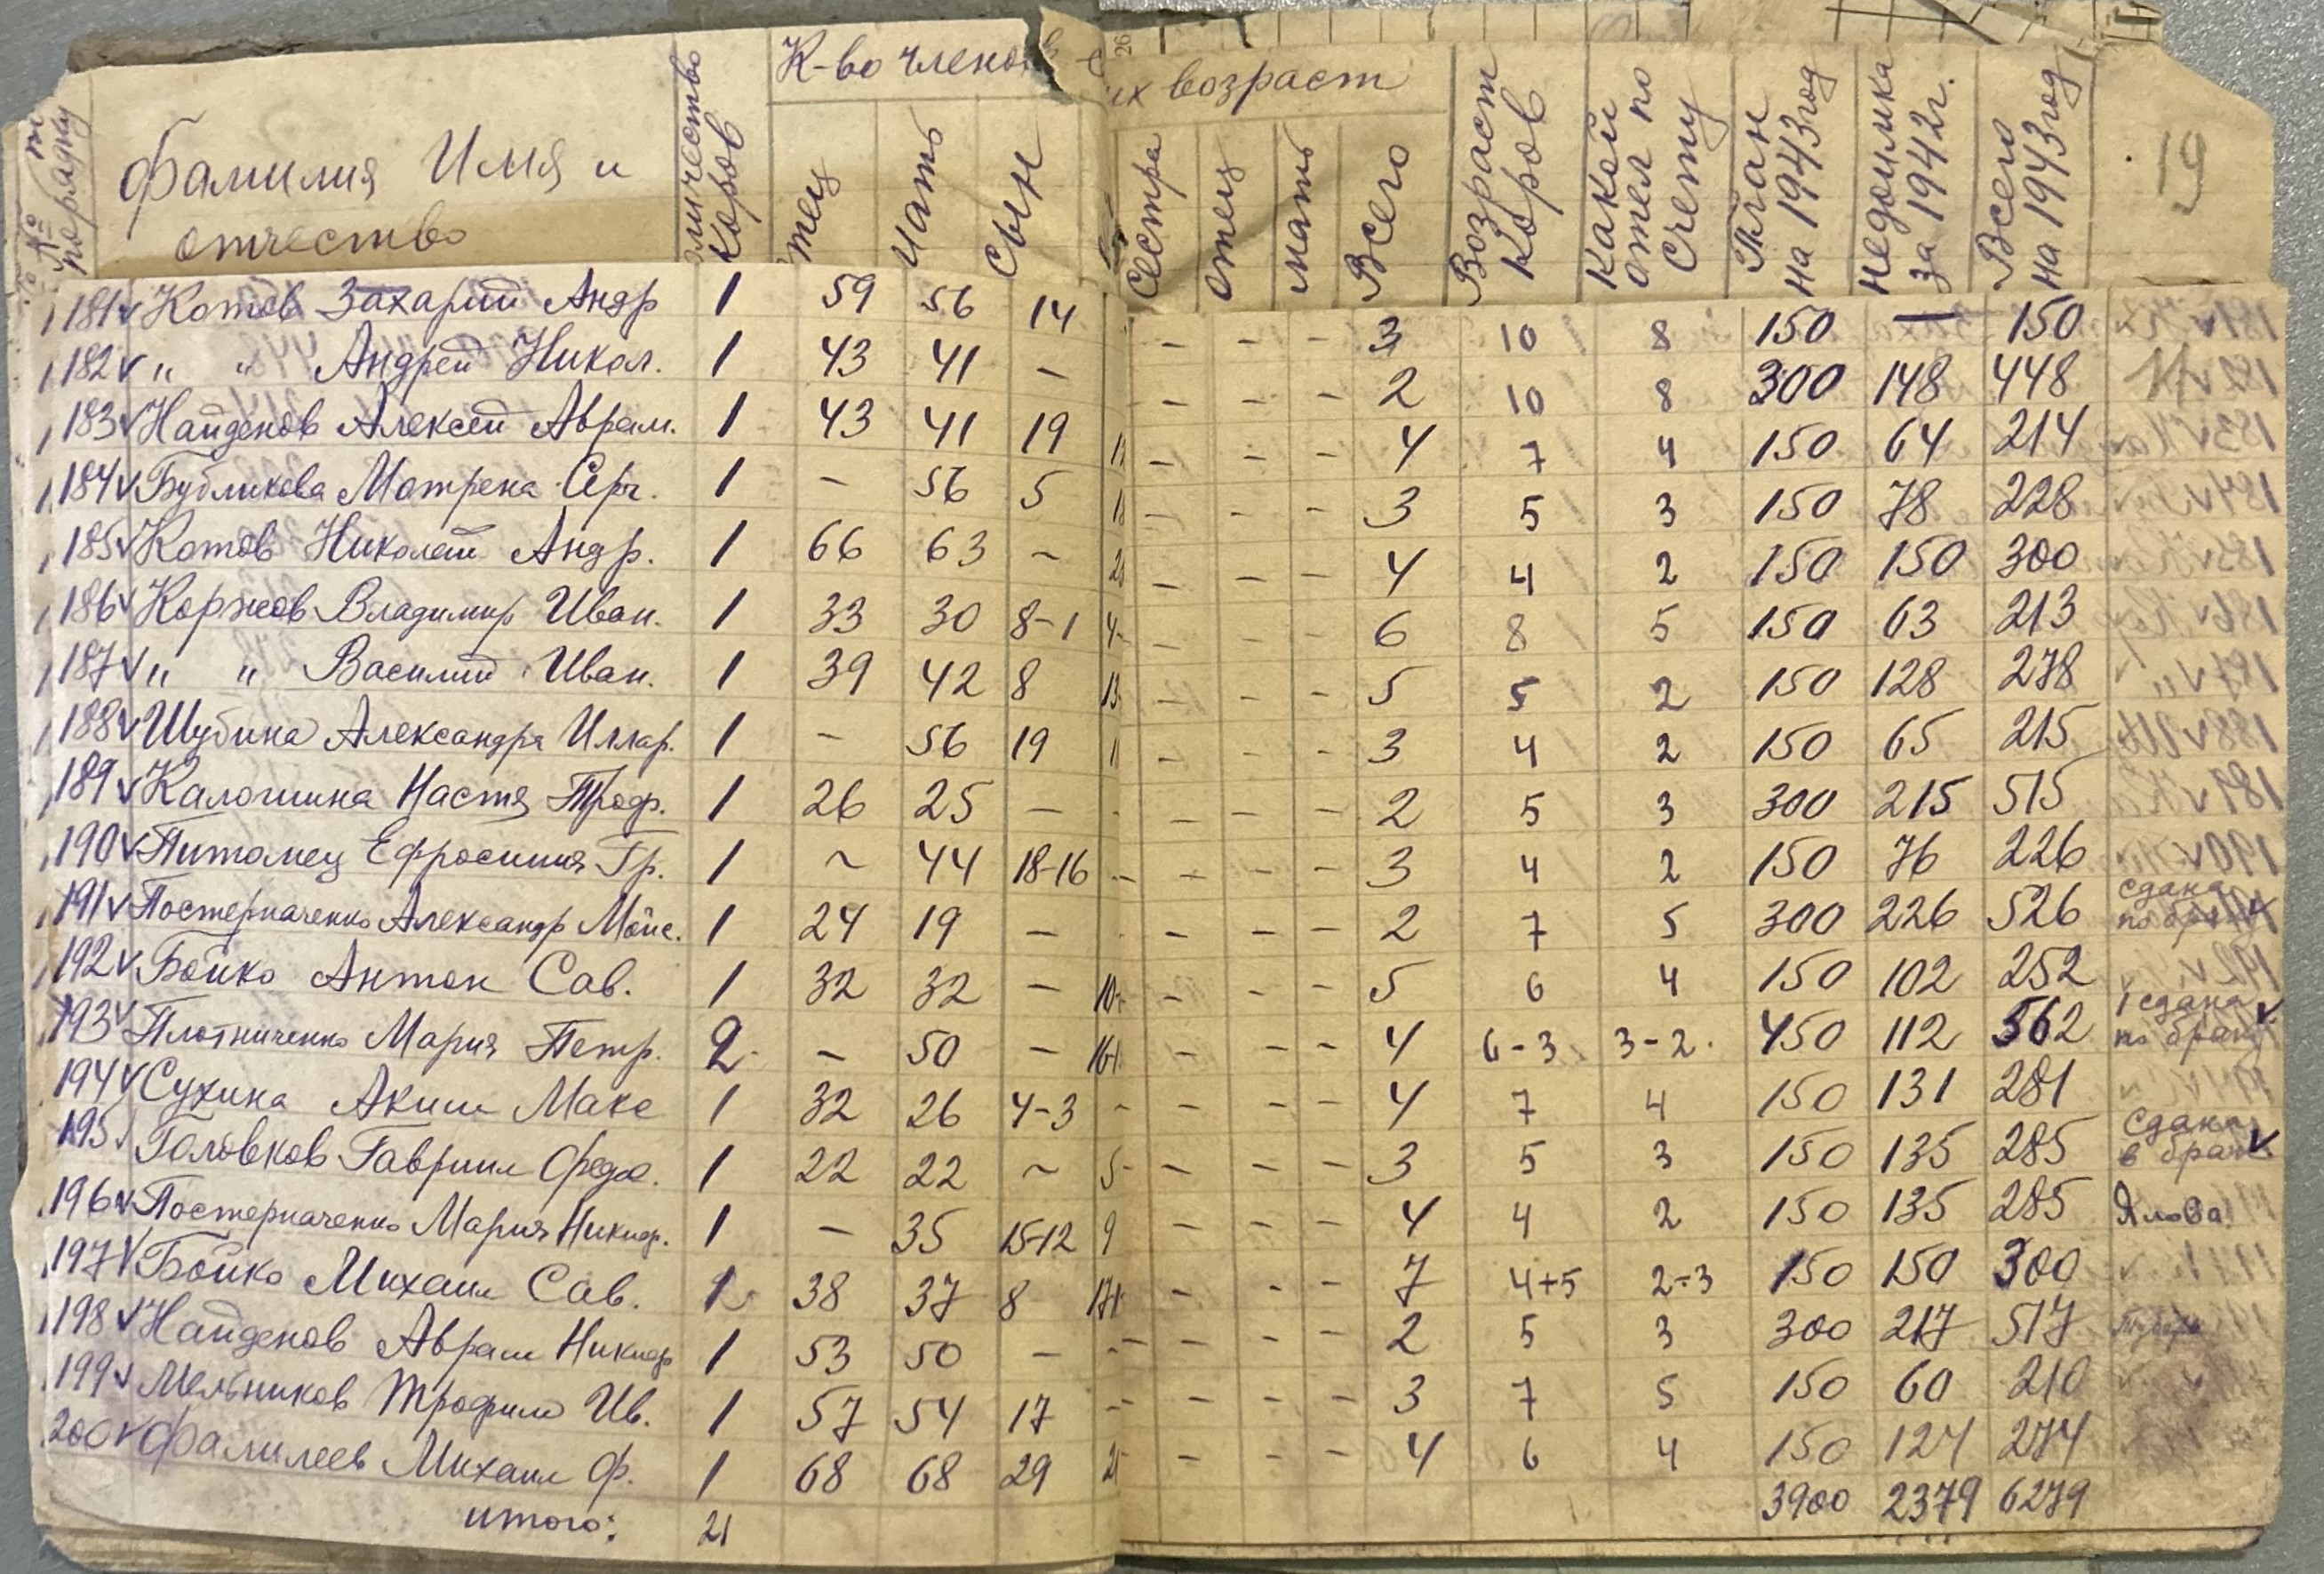 №№ по порядку Фамилия Имя и отчество Количество коров К-во членов их возраст
отец мать сын сестра отец мать Всего Возраст коров какой отел по счету План на 1943 год недоимка за 1942 г. Всего на 1943 год 19
181 v Котов Захарий Андр 1 59 56 14 - - - 3 10 8 150 — 150
182 v " " Андрей Никол. 1 43 41 - - - - 2 10 8 300 148 448
183 v Найденов Алексей Аврам. 1 43 41 19 - - - 4 7 4 150 64 214
184 v Бубликова Мотрена Сер. 1 - 56 5 - - - 3 5 3 150 78 228
185 v Котов Николай Андр. 1 66 63 ~ - - - 4 4 2 150 150 300
186 v Коржов Владимир Иван. 1 33 30 8-1 4- - - - 6 8 5 150 63 213
187 v " " Василий Иван. 1 39 42 8 13 - - - 5 5 2 150 128 278
188 v Шубина Александра Иллар. 1 - 56 19 - - - 3 4 2 150 65 215
189 v Калошина Настя Троф. 1 26 25 — - - - 2 5 3 300 215 515
190 v Питомец Ефросиния Гр. 1 ~ 44 18-16 - - - - 3 4 2 150 76 226
191 v Постерначенко Александр Мойс. 1 24 19 — - - - 2 7 5 300 226 526 сдана по браку
192 v Бойко Антон Сав. 1 32 32 - 10- - - - 5 6 4 150 102 252
193 v Плотниченко Мария Петр. 2 - 50 - 16- - - - 4 6-3 3-2 450 112 562 1 сдана по браку v
194 v Сухина Аким Макс 1 32 26 4-3 - - - - 4 7 4 150 131 281
195 Головков Гавриил Федо. 1 22 22 ~ 5- - - - 3 5 3 150 135 285 Сдана в брак v
196 v Постерначенко Мария Никиф. 1 - 35 15-12 9 - - - 4 4 2 150 135 285 Ялова
197 v Бойко Михаил Сав. 38 37 8 - - - 7 4+5 2-3 150 150 300
198 v Найденов Аврам Никиф 1 53 50 — - - - - 2 5 3 300 217 517
199 v Мельников Трофим Ив. 1 57 54 17 - - - - 3 7 5 150 60 210
200 v Фалилеев Михаил Ф. 1 68 68 29 - - - 4 6 4 150 124 274
итого: 21 3900 2379 6279